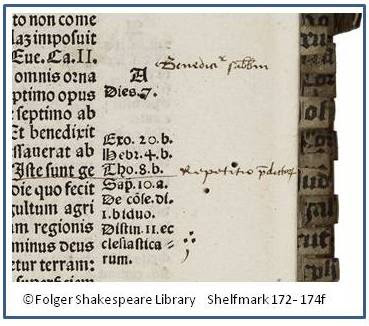 to non come
laz imposuit
Eue. Ca.II.
omnis orna
ptimo opus
septimo ab
Et benedixit
ssauerat ab
Iste sunt ge
die quo fecit
gultum agri
am regionis
minus deus
etur terram:
A
Dies.7.
Exo. 20.b.
Hebr. 4.b.
Tho. 8.b.
Sap. 10.a.
De cõse.di.
I.biduo.
Distin.II.ec
clesiastica=
rum.
Repetitio
©Folger Shakespeare Library Shelfmark 172- 174f